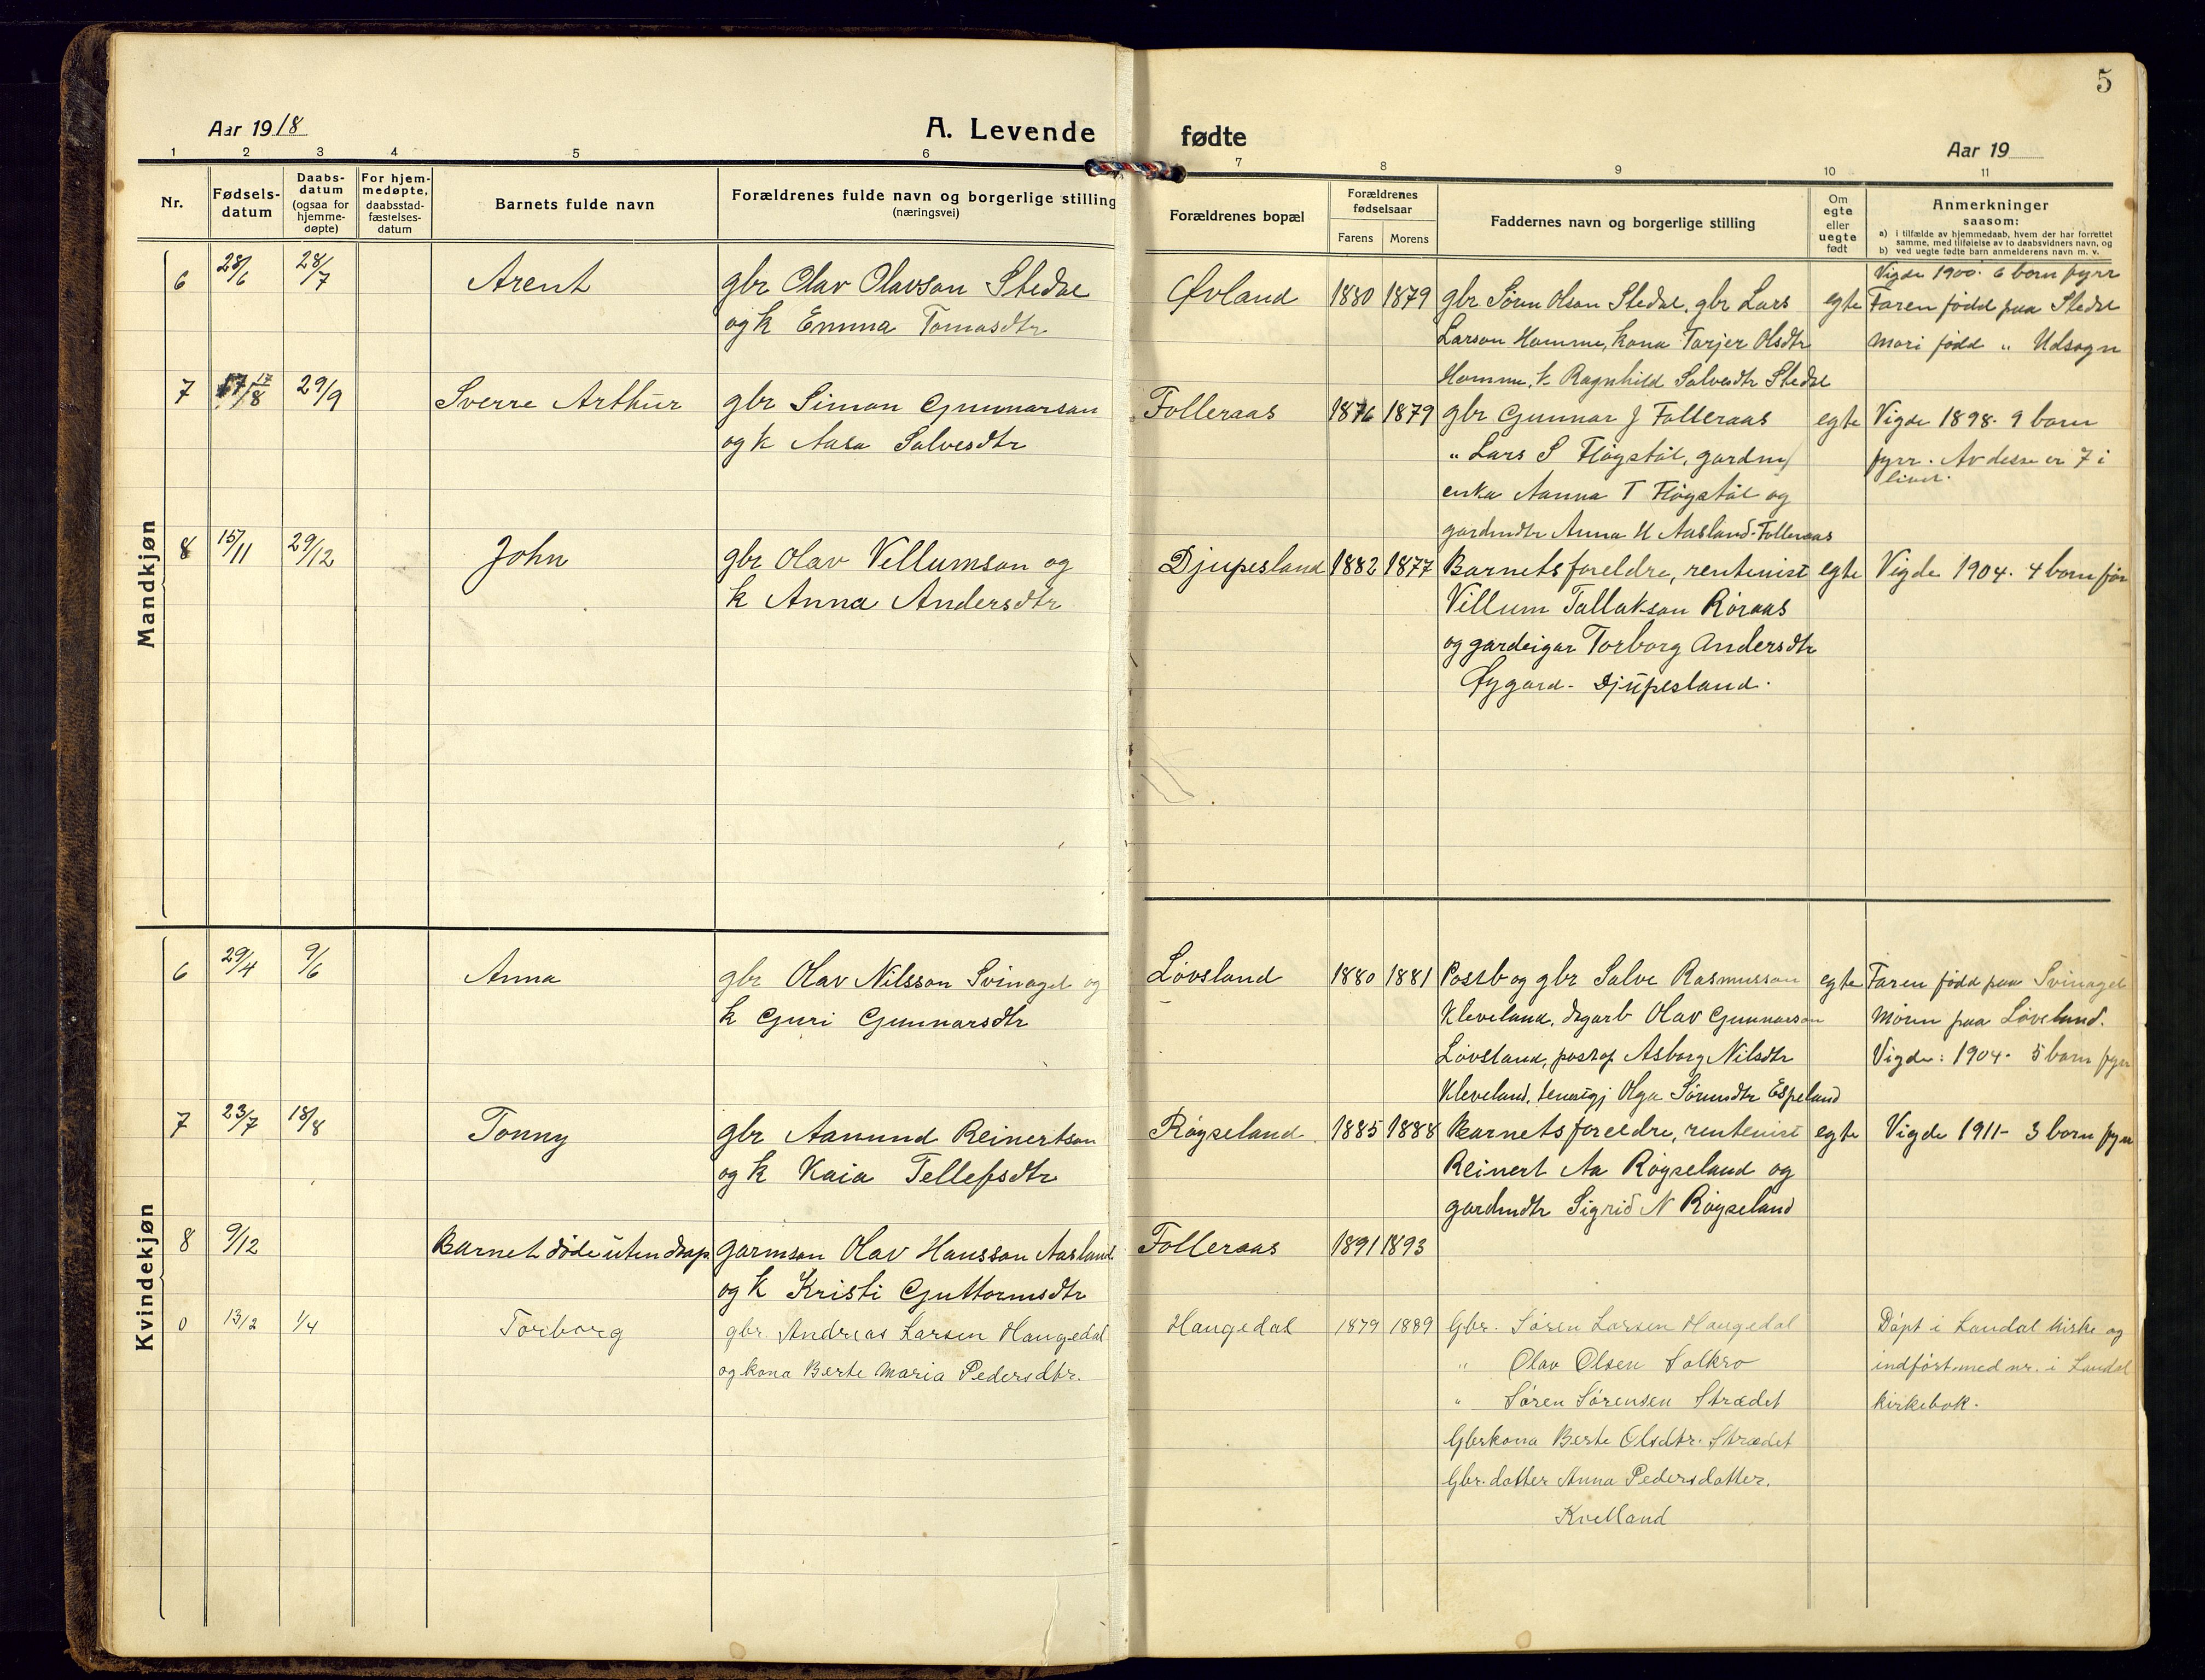 5
Aar 1918
A. Levende fødte
Aar 19
1 2 3 4 5 6 7 8 9 10 11
Nr.
Fødsels-
datum
Daabs-
datum
(ogsaa for
hjemme-
døpte)
For hjem-
medøpte,
daabsstad-
fæstelses-
datum
Barnets fulde navn
Forældrenes fulde navn og borgerlige stilling
(næringsvei)
Forældrenes bopæl
Forældrenes
fødselsaar
Farens Morens
Faddernes navn og borgerlige stilling
Om
egte
eller
uegte
født
Anmerkninger
saasom:
a) i tilfælde av hjemmedaab, hvem der har forrettet
samme, med tilføielse av to daabsvidners navn, og
b) ved uegte fødte barn anmelderens navn m. v.
Mandkjøn
6 28/6 28/7 Arent
gbr Olav Olavson Stedal
og k Emma Tomasdtr
Øvland 1880 1879
gbr Sørn Olson Stedal, gbr Lars
Larson Homme, kona Tarjer Olsdtr
Homme, k Ragnhild Salvesdtr Stedal
egte
Vigde 1900. 6 born fyrr
Faren fødd paa Stedal
Mori fødd " Udsogn
7 17/8 29/9 Sverre Arthur
gbr Simon Gunnarson
og k Aasa Salvesdtr
Folleraas 1876 1879
gbr Gunnar J Folleraas
" Lars S Fløystøl, gardm
enka Aanna T Fløystøl og
gardmdtr Anna H Aasland-Folleraas
egte
Vigde 1898. 9 born
fyrr. Av desse er 7 i
livet.
8 15/11 29/12 John
gbr Olav Vellumson og
k Anna Andersdtr
Djupesland 1882 1877
Barnets foreldre, rentenist
Villum Tallakson Røraas
og gardeigar Torborg Andersdtr
Øygard - Djupesland.
egte
Vigde 1904. 4 born før
Kvindekjøn
6 29/4 9/6 Anna
gbr Olav Nilsson Svinagel og
k Guri Gunnarsdtr
Løvsland 1880 1881
Postb og gbr Salve Rasmusson
Kleveland, dagarb Olav Gunnarson
Løvsland, postop Asborg Nilsdtr
Kleveland, tenestgj Olga Sørensdtr Espeland
egte
Faren fødd paa Svinagel
Moren paa Løvsland.
Vigde: 1904. 5 born fyrr
7 23/7 18/8 Tonny
gbr Aanund Reinertson
og k Kaia Tellefsdtr
Røyseland 1885 1888
Barnets foreldre, rentenist
Reinert Aa Røyseland og
gardmdtr Sigrid N Røyseland
egte
Vigde 1911 - 3 born fyrr
8 9/12 Barnet døde uten daap
garmson Olav Hansson Aasland
og k Kristi Guttormsdtr
Folleraas 1891 1893
0 13/2 1/4 Torborg
gbr. Andreas Larsen Haugedal
og kona Berte Maria Pedersdtr.
Haugedal 1879 1889
Gbr. Søren Larsen Haugedal
" Olav Olsen Solkro
" Søren Sørensen Strædet
Gbrkona Berte Olsdtr. Strædet
Gbr. datter Anna Pedersdatter,
Kvelland
Døpt i Laudal kirke og
indført med nr. i Laudal
kirkebok.